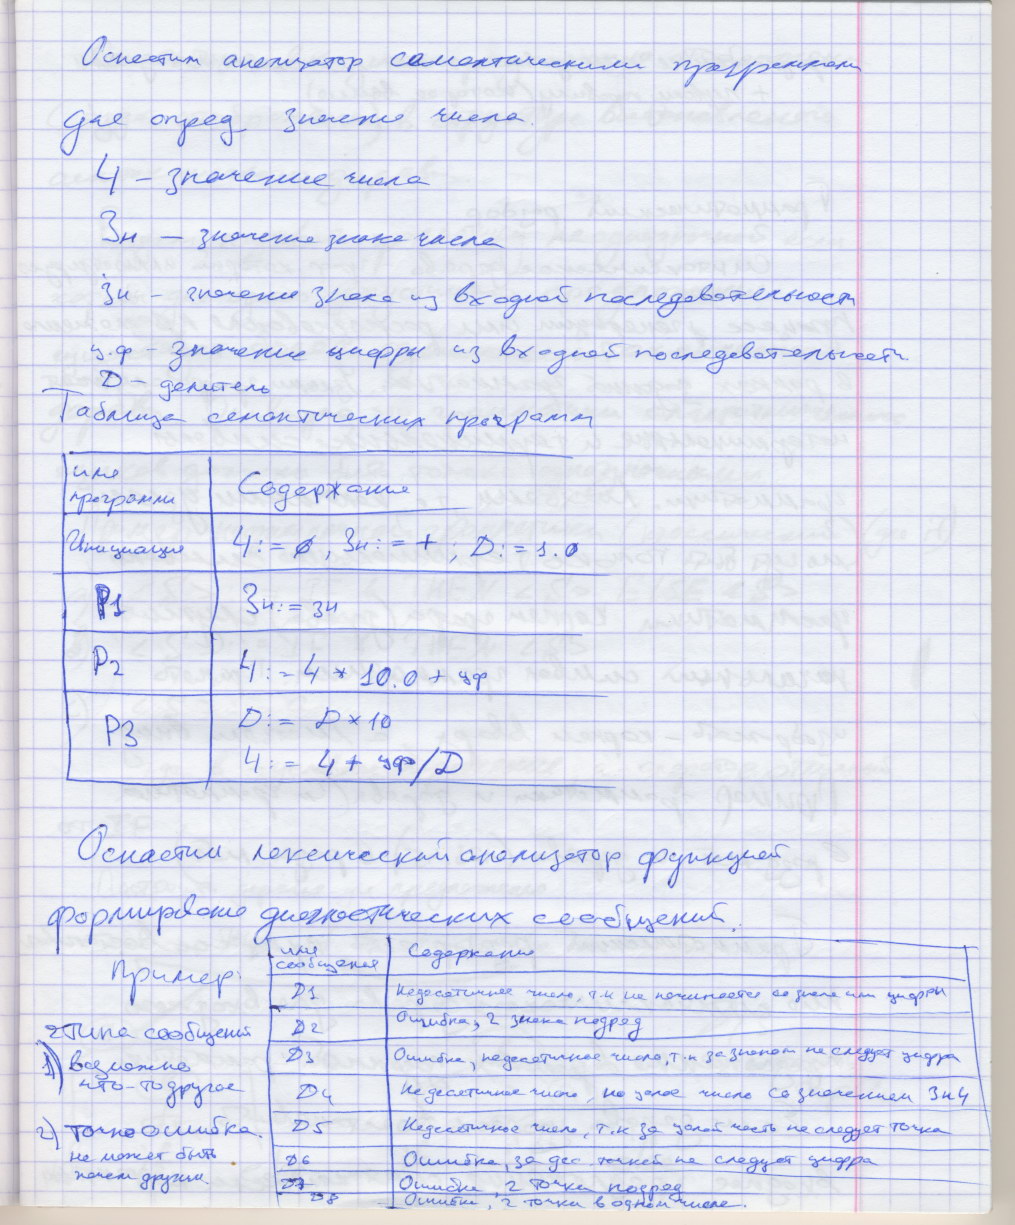 Оснастим анализатор семантическими программами
для опред значение числа.
Ч – значение числа
Зн – значение знака числа
зн – значение знака из входной последовательности
цф – значение цифры из входной последовательности.
D – делитель
Таблица семантических программ
имя программы | Содержание
Инициация | Ч := 0, Зн := +; D := 1.0
P1 | Зн := зн
P2 | Ч := Ч * 10.0 + цф
P3 | D := D × 10
Ч := Ч + цф/D
Оснастим лексический анализатор функцией
формирование диагностических сообщений.
Пример:
имя сообщения | Содержание
D1 | Недесятичное число, т.к не начинается со знака или цифры
2 типа сообщений
D2 | Ошибка, 2 знака подряд
1) возможно
что-то другое
D3 | Ошибка, недесятичное число, т.к за знаком не следует цифра
D4 | Недесятичное число, но целое число со значением ЗнЧ
2) точно ошибка.
не может быть
ничем другим
D5 | Недесятичное число, т.к за целой часть не следует точка
D6 | Ошибка, за дес. точкой не следует цифра
D7 | Ошибка, 2 точки подряд
D8 | Ошибка, 2 точки в одном числе.